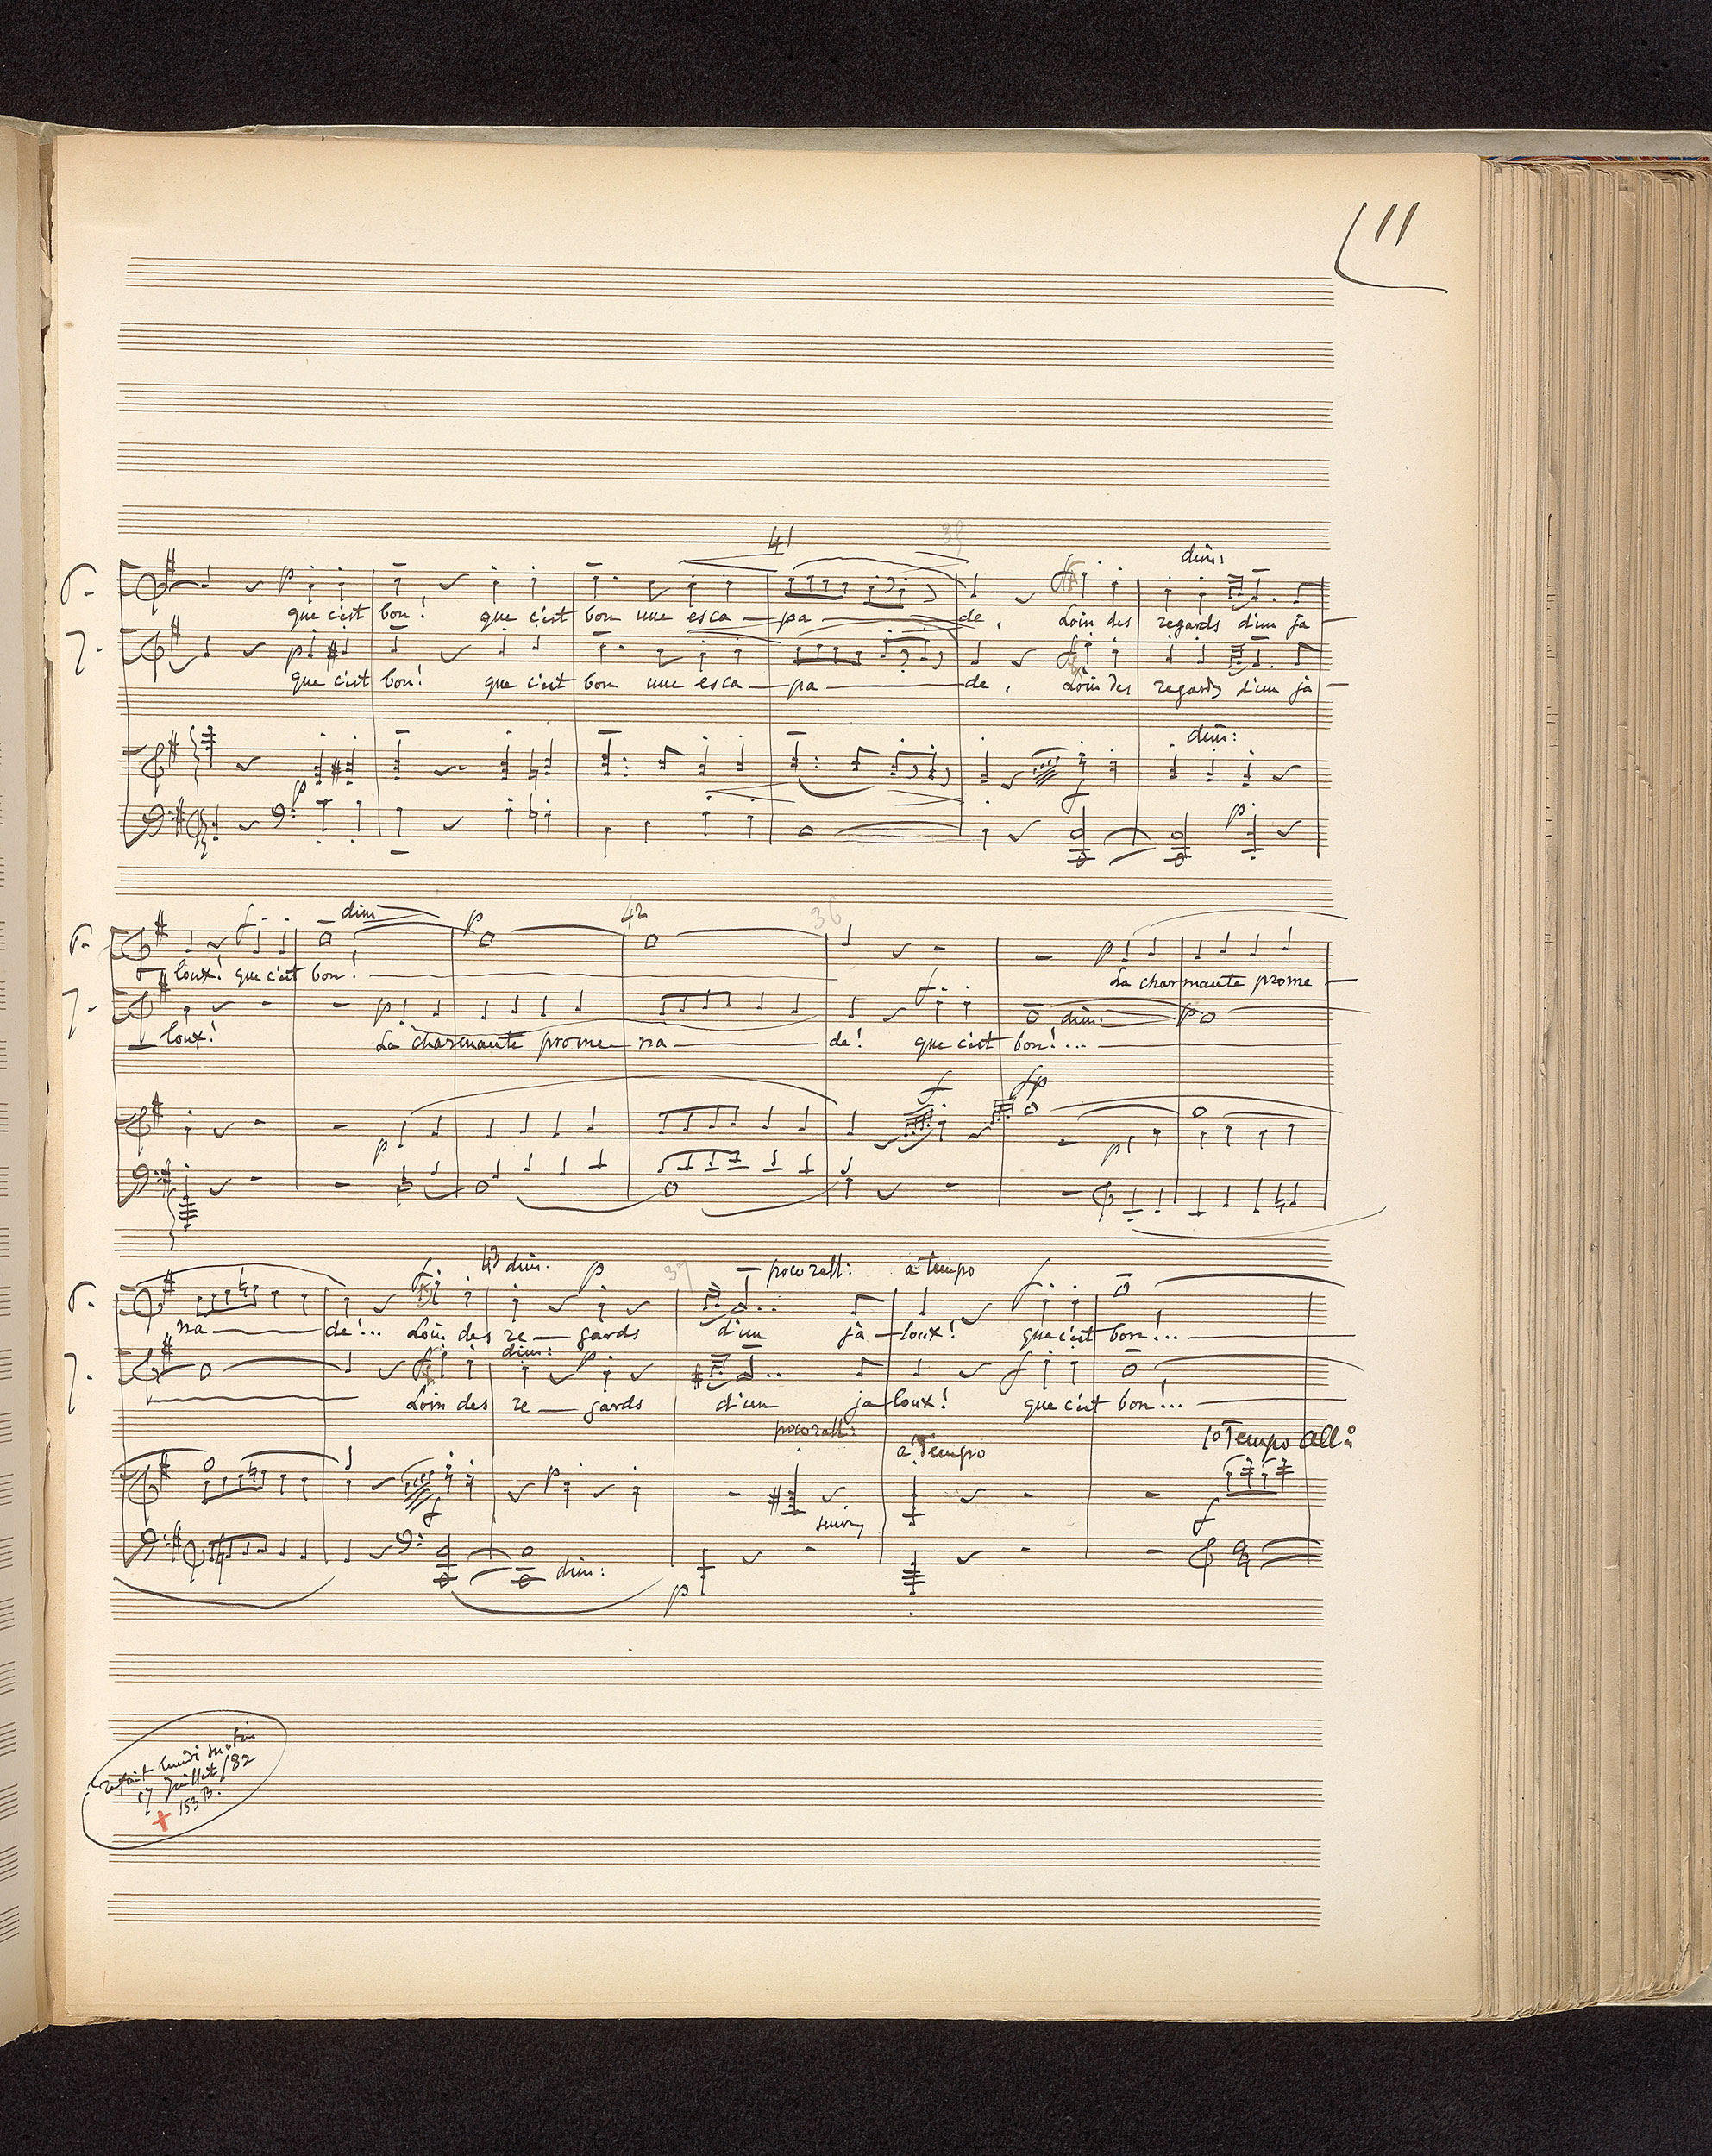 11
41
35
dim:
6.
que c'est bon! que c'est bon une esca — pa — de, Loin des regards d'un ja —
7.
que c'est bon! que c'est bon une esca — pa — de, Loin des regards d'un ja —
dim:
p
f
p
dim
p
42
36
6.
loux! que c'est bon! — La charmante prome —
7.
f
dim:
p
loux! La charmante prome — na — de! que c'est bon!... —
f
fp
p
p
dim.
p
37
poco rall:
a tempo
f
6.
na — de!... Loin des re — gards d'un ja — loux! que c'est bon!... —
dim:
p
f
7.
— Loin des re — gards d'un ja loux! que c'est bon!... —
poco rall:
a Tempo
1o Tempo All°
p
f
suivez
f
dim:
p
refait lundi matin
17 Juillet /82
+ 153 B.